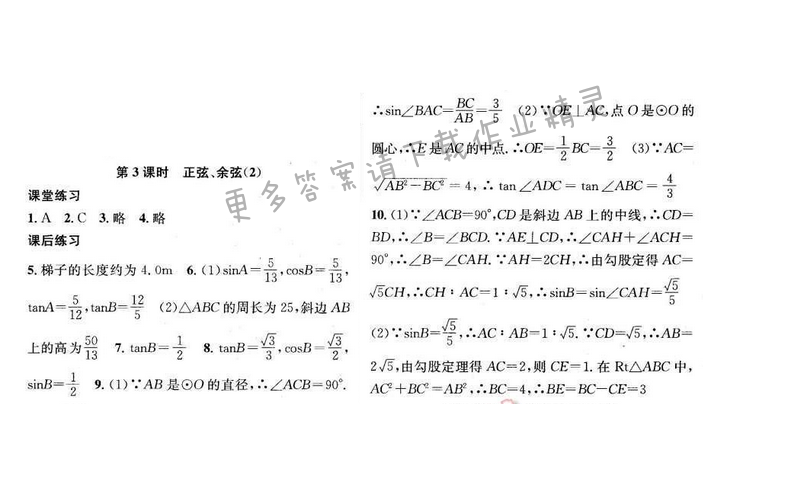 第 3 课时　正弦、余弦(2)
课堂练习
1. A　2. C　3. 略　4. 略
课后练习
5. 梯子的长度约为 4.0m　6. (1)sinA=5/13,cosB=5/13,
tanA=5/12,tanB=12/5　(2)△ABC 的周长为 25,斜边 AB
上的高为50/13　7. tanB=1/2　8. tanB=√3/3,cosB=√3/2,
sinB=1/2　9. (1)∵AB 是⊙O 的直径,∴∠ACB=90°.
∴sin∠BAC=BC/AB=3/5　(2)∵OE⊥AC,点 O 是⊙O 的
圆心,∴E 是 AC 的中点.∴OE=1/2BC=3/2　(3)∵AC=
√(AB²-BC²)=4,∴tan∠ADC=tan∠ABC=4/3
10. (1)∵∠ACB=90°,CD 是斜边 AB 上的中线,∴CD=
BD,∴∠B=∠BCD.∵AE⊥CD,∴∠CAH+∠ACH=
90°,∴∠B=∠CAH.∵AH=2CH,∴由勾股定得 AC=
√5CH,∴CH∶AC=1∶√5,∴sinB=sin∠CAH=√5/5
(2)∵sinB=√5/5,∴AC∶AB=1∶√5.∵CD=√5,∴AB=
2√5,由勾股定理得 AC=2,则 CE=1.在 Rt△ABC 中,
AC²+BC²=AB²,∴BC=4,∴BE=BC-CE=3
更多答案请下载作业精灵